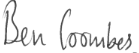 Ben Coombes